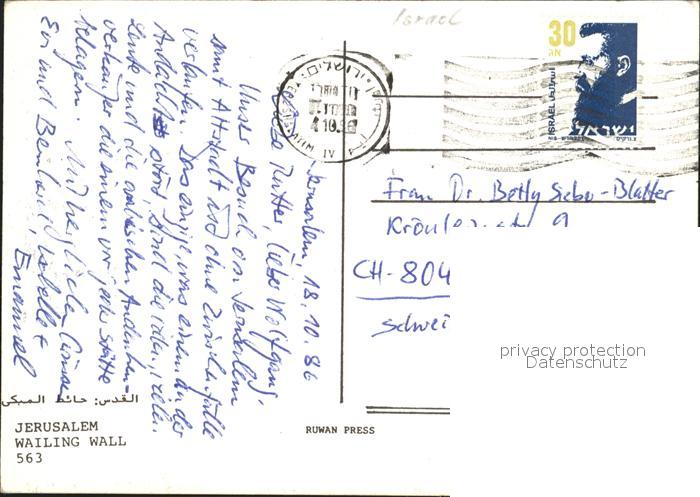 Israel
30
אג
ISRAEL اسرائيل
ישראל
ירושלים
JERUSALEM
10.86
Jerusalem, 18.10.86
Liebe Mutter, lieber Wolfgang,
Unser Besuch von Jerusalem
mit Altstadt ist ohne Zwischenfälle
verlaufen. Das einzige, was einen an der
Andacht stört, sind die vielen, vielen
Leute und die
verkäufer die einem vor jeder Stätte
belagern. Mit herzlichen Grüssen
Eur und Benland, Isabelle +
Emanuel
Frau Dr. Betty Siebo-Blatter
9
CH-804
Schwei
privacy protection
Datenschutz
القدس: حائط المبكى
JERUSALEM
WAILING WALL
563
RUWAN PRESS